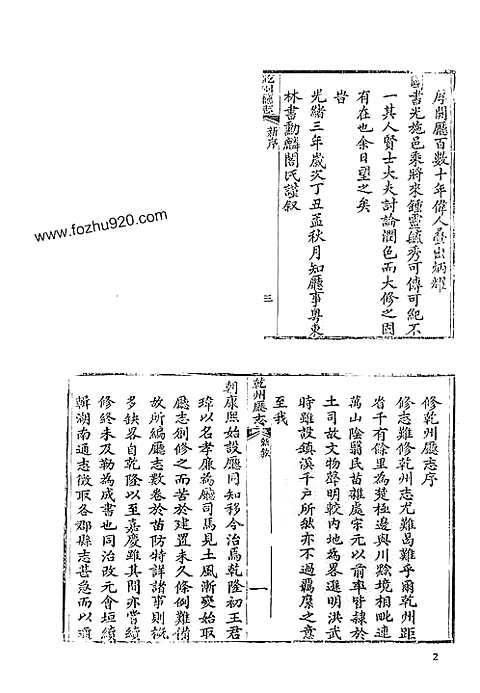 序開廳百數十年偉人疊出炳耀
書光施邑乘將來鍾靈毓秀可傳可紀不
一其人賢士大夫討論潤色而大修之固
有在也余日望之矣
旹
光緒三年歲次丁丑孟秋月知廳事粵東
林書勳麟閣氏謹叙
乾州廳志
新序
三
www.fozhu920.com
修乾州廳志序
修志難修乾州志尤難曷難乎爾乾州距
省千有餘里為楚極邊與川黔境相毗連
萬山陰翳民苗雜處宋元以前率皆隸於
土司故文物聲明較內地為畧進明洪武
時雖設鎮溪千戶所然亦不過羈縻之意
至我
乾州廳志
舊敘
一
朝康熙始設廳同知移今治焉乾隆初王君
瑋以名孝廉為廳司馬見土風漸變始取
廳志創修之而苦於建置未久條例難備
故所編廳志數卷於苗防特詳諸事則概
多缺畧自乾隆以至嘉慶雖其間亦嘗續
修終未及勒為成書也同治改元會垣續
輯湖南通志徵取各郡縣志甚急而以瓊
2